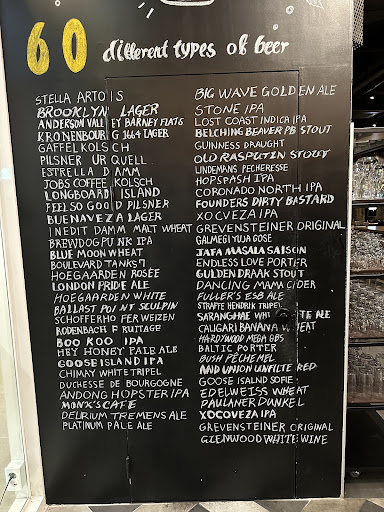 60 different types of beer
STELLA ARTOIS
BROOKLYN LAGER
ANDERSON VALLEY BARNEY FLATS
KRONENBOURG 1664 LAGER
GAFFEL KOLSCH
PILSNER URQUELL
ESTRELLA DAMM
JOBS COFFEE KOLSCH
LONGBOARD ISLAND
FEEL SO GOOD PILSNER
BUENAVEZA LAGER
INEDIT DAMM MALT WHEAT
BREWDOG PUNK IPA
BLUE MOON WHEAT
BOULEVARD TANK 7
HOEGAARDEN ROSÉE
LONDON PRIDE ALE
HOEGAARDEN WHITE
BALLAST POINT SCULPIN
SCHOFFERHOFER WEIZEN
RODENBACH FRUITAGE
BOO KOO IPA
HEY HONEY PALE ALE
GOOSE ISLAND IPA
CHIMAY WHITE TRIPEL
DUCHESSE DE BOURGOGNE
ANDONG HOPSTER IPA
MONX'S CAFE
DELIRIUM TREMENS ALE
PLATINUM PALE ALE
BIG WAVE GOLDEN ALE
STONE IPA
LOST COAST INDICA IPA
BELCHING BEAVER PB STOUT
GUINNESS DRAUGHT
OLD RASPUTIN STOUT
LINDEMANS PECHERESSE
HOPSPASH IPA
CORONADO NORTH IPA
FOUNDERS DIRTY BASTARD
XOCVEZA IPA
GREVENSTEINER ORIGINAL
GALMEGI YUJA GOSE
JAFA MASALA SAISON
ENDLESS LOVE PORTER
GULDEN DRAAK STOUT
DANCING MAMA CIDER
FULLER'S ESB ALE
STRAFFE HENDRIK TRIPEL
SARANGHAE WHITE ALE
CALIGARI BANANA WHEAT
HARDYWOOD MEGA GBS
BALTIC PORTER
BUSH PÊCHEMEL
AND UNION UNFILTE RED
GOOSE ISALND SOFIE
EDELWEISS WHEAT
PAULANER DUNKEL
XOCOVEZA IPA
GREVENSTEINER ORIGINAL
GLENWOOD WHITE WINE